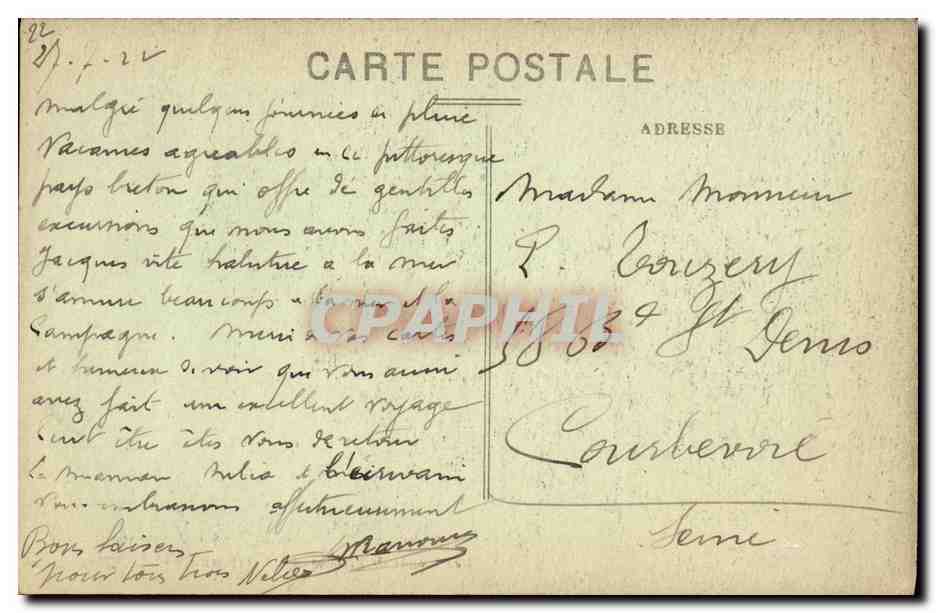 22
27.7.22
CARTE POSTALE
malgré quelques journées de pluie
Vacances agréables en ce pittoresque
pays breton qui offre de gentilles
excursions que nous avons faites
Jacques vite habitué à la mer
s'amuse beaucoup et la
Campagne. Merci de vos cartes
et heureux de voir que vous aussi
avez fait un excellent voyage
Peut être êtes vous de retour
La maman et
Vous embrassons affectueusement
Bons baisers
pour tous trois
ADRESSE
Madame Monsieur
P. Touzery
58 Bd St Denis
Courbevoie
Seine
CPAPHIL